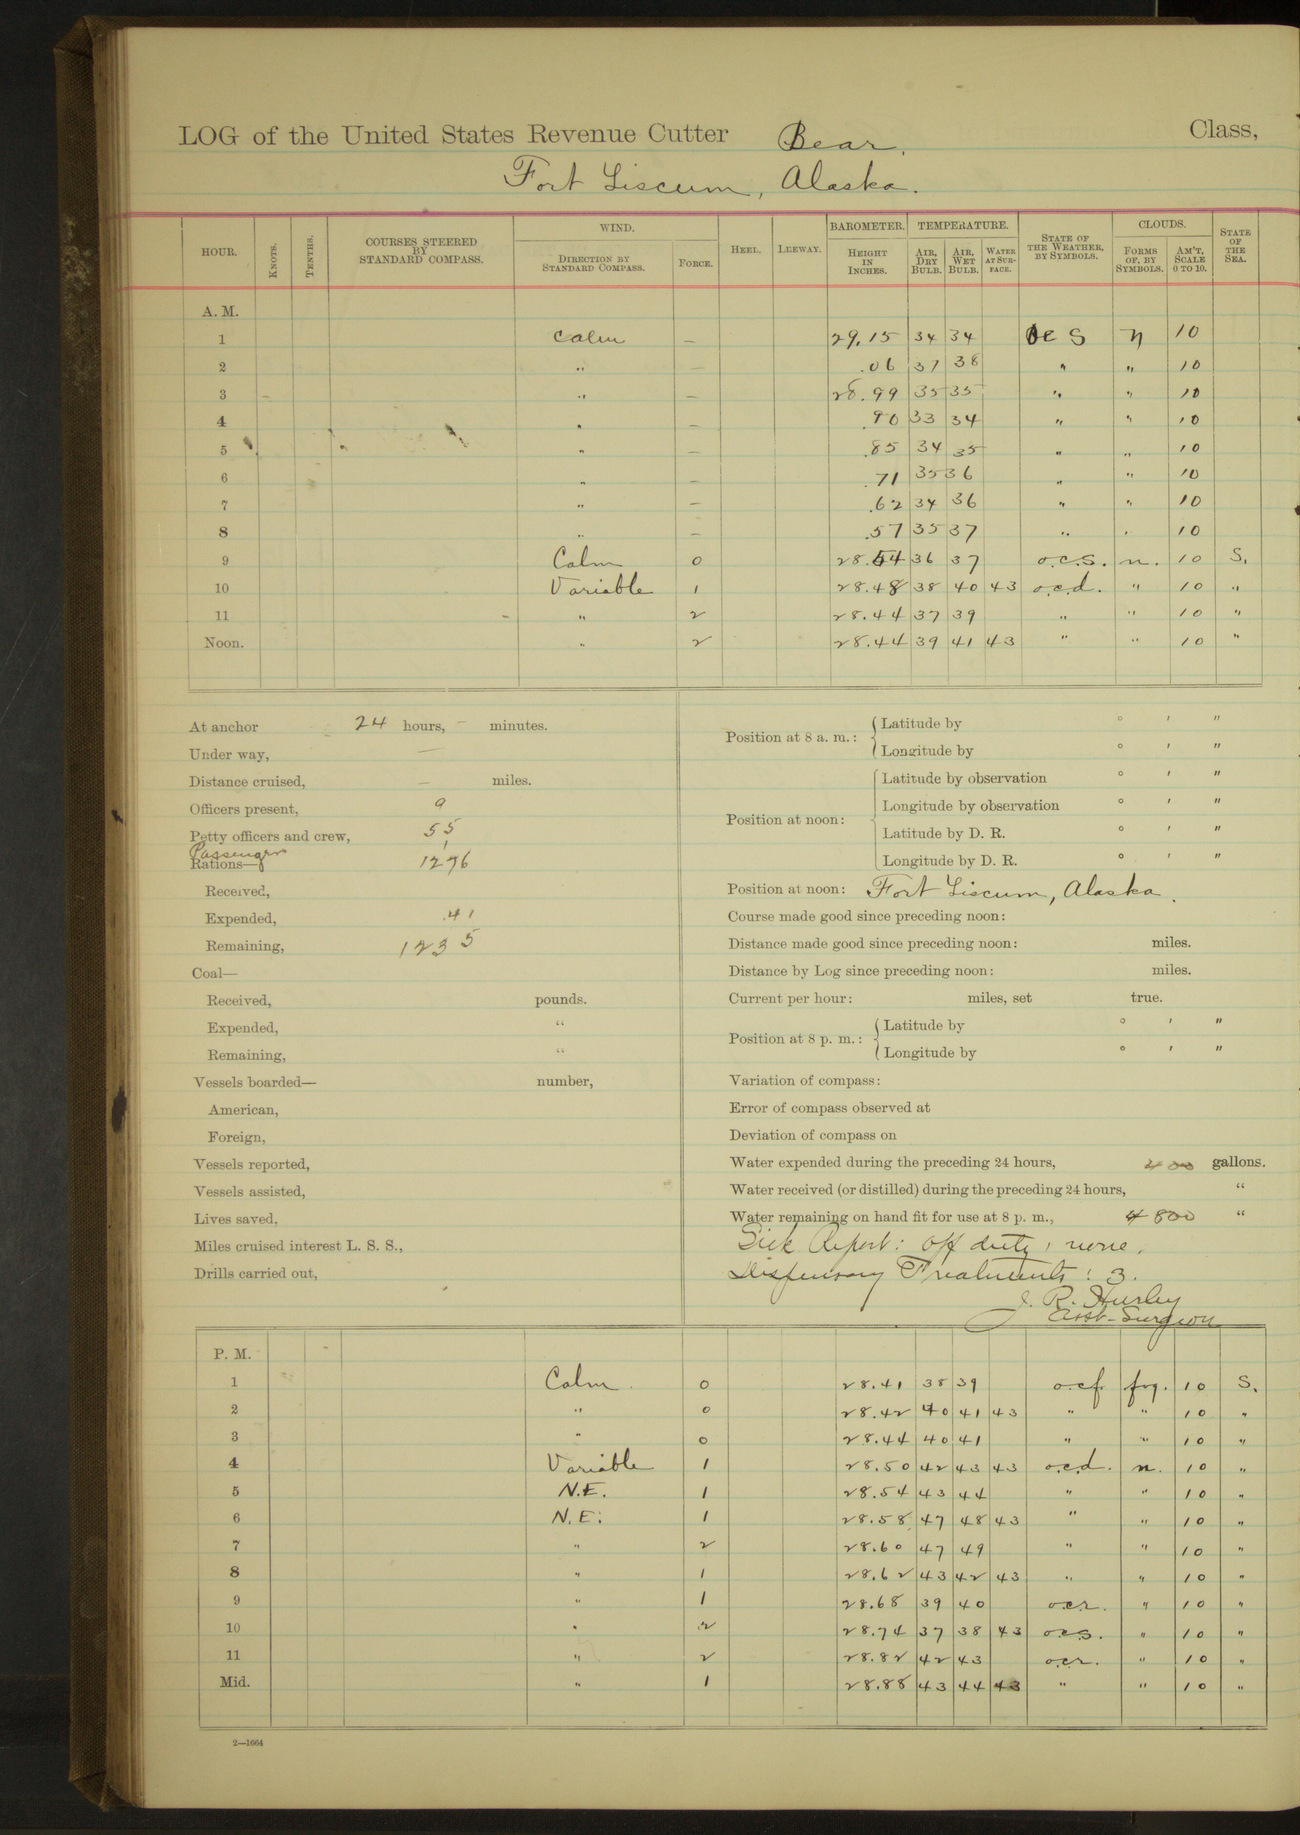 LOG of the United States Revenue Cutter Bear. Class,
Fort Liscum, Alaska.
HOUR. KNOTS. TENTHS. COURSES STEERED BY STANDARD COMPASS. WIND. DIRECTION BY STANDARD COMPASS. FORCE. HEEL. LEEWAY. BAROMETER. HEIGHT IN INCHES. TEMPERATURE. AIR, DRY BULB. AIR, WET BULB. WATER AT SURFACE. STATE OF THE WEATHER, BY SYMBOLS. CLOUDS. FORMS OF, BY SYMBOLS. AM'T, SCALE 0 TO 10. STATE OF THE SEA.
A. M.
1 Calm – 29.15 34 34 oc s n 10
2 " – .06 37 38 " " 10
3 – " – 28.99 35 35 " " 10
4 " – .90 33 34 " " 10
5 " – .85 34 35 " " 10
6 " – .71 35 36 " " 10
7 " – .62 34 36 " " 10
8 " – .57 35 37 " " 10
9 Calm 0 28.54 36 37 o.c.s. n. 10 S.
10 Variable 1 28.48 38 40 43 o.c.d. " 10 "
11 " 2 28.44 37 39 " " 10 "
Noon. " 2 28.44 39 41 43 " " 10 "
At anchor 24 hours, – minutes.
Under way, –
Distance cruised, – miles.
Officers present, 9
Petty officers and crew, 55
Passengers 1
Rations— 1276
Received,
Expended, 41
Remaining, 1235
Coal—
Received, pounds.
Expended, "
Remaining, "
Vessels boarded— number,
American,
Foreign,
Vessels reported,
Vessels assisted,
Lives saved,
Miles cruised interest L. S. S.,
Drills carried out,
Position at 8 a. m.: Latitude by ° ' "
Longitude by ° ' "
Position at noon: Latitude by observation ° ' "
Longitude by observation ° ' "
Latitude by D. R. ° ' "
Longitude by D. R. ° ' "
Position at noon: Fort Liscum, Alaska.
Course made good since preceding noon:
Distance made good since preceding noon: miles.
Distance by Log since preceding noon: miles.
Current per hour: miles, set true.
Position at 8 p. m.: Latitude by ° ' "
Longitude by ° ' "
Variation of compass:
Error of compass observed at
Deviation of compass on
Water expended during the preceding 24 hours, 400 gallons.
Water received (or distilled) during the preceding 24 hours, "
Water remaining on hand fit for use at 8 p. m., 4800 "
Sick Report: off duty, none.
Dispensary Treatments: 3.
J. R. Hurley
Asst-Surgeon
P. M.
1 Calm. 0 28.41 38 39 o.c.f. frg. 10 S.
2 " 0 28.42 40 41 43 " " 10 "
3 " 0 28.44 40 41 " " 10 "
4 Variable 1 28.50 42 43 43 o.c.d. n. 10 "
5 N.E. 1 28.54 43 44 " " 10 "
6 N.E. 1 28.58 47 48 43 " " 10 "
7 " 2 28.60 47 49 " " 10 "
8 " 1 28.62 43 42 43 " " 10 "
9 " 1 28.68 39 40 o.c.r. " 10 "
10 " 2 28.74 37 38 43 o.c.s. " 10 "
11 " 2 28.82 42 43 o.c.r. " 10 "
Mid. " 1 28.88 43 44 43 " " 10 "
2—1664